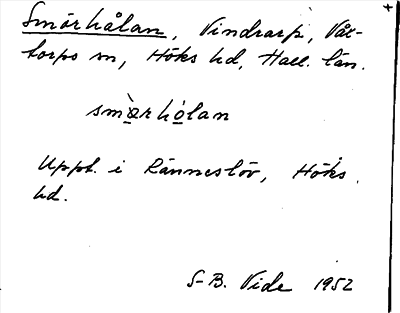 Smörhålan, Vindrarp, Vår-
torps sn, Höks hd, Hall. län.
smòrhólan
Uppt. i Ränneslöv, Höks
hd.
S-B. Vide 1952